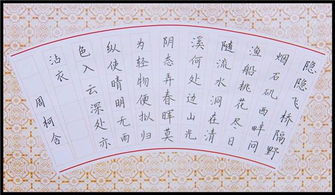 隐隐飞桥隔野
烟石矶西畔问
渔船桃花尽日
随流水洞在清
溪何处边山光
阴态弄春晖莫
为轻物便拟归
纵使晴明无雨
色入云深处亦
沾衣
周柯含